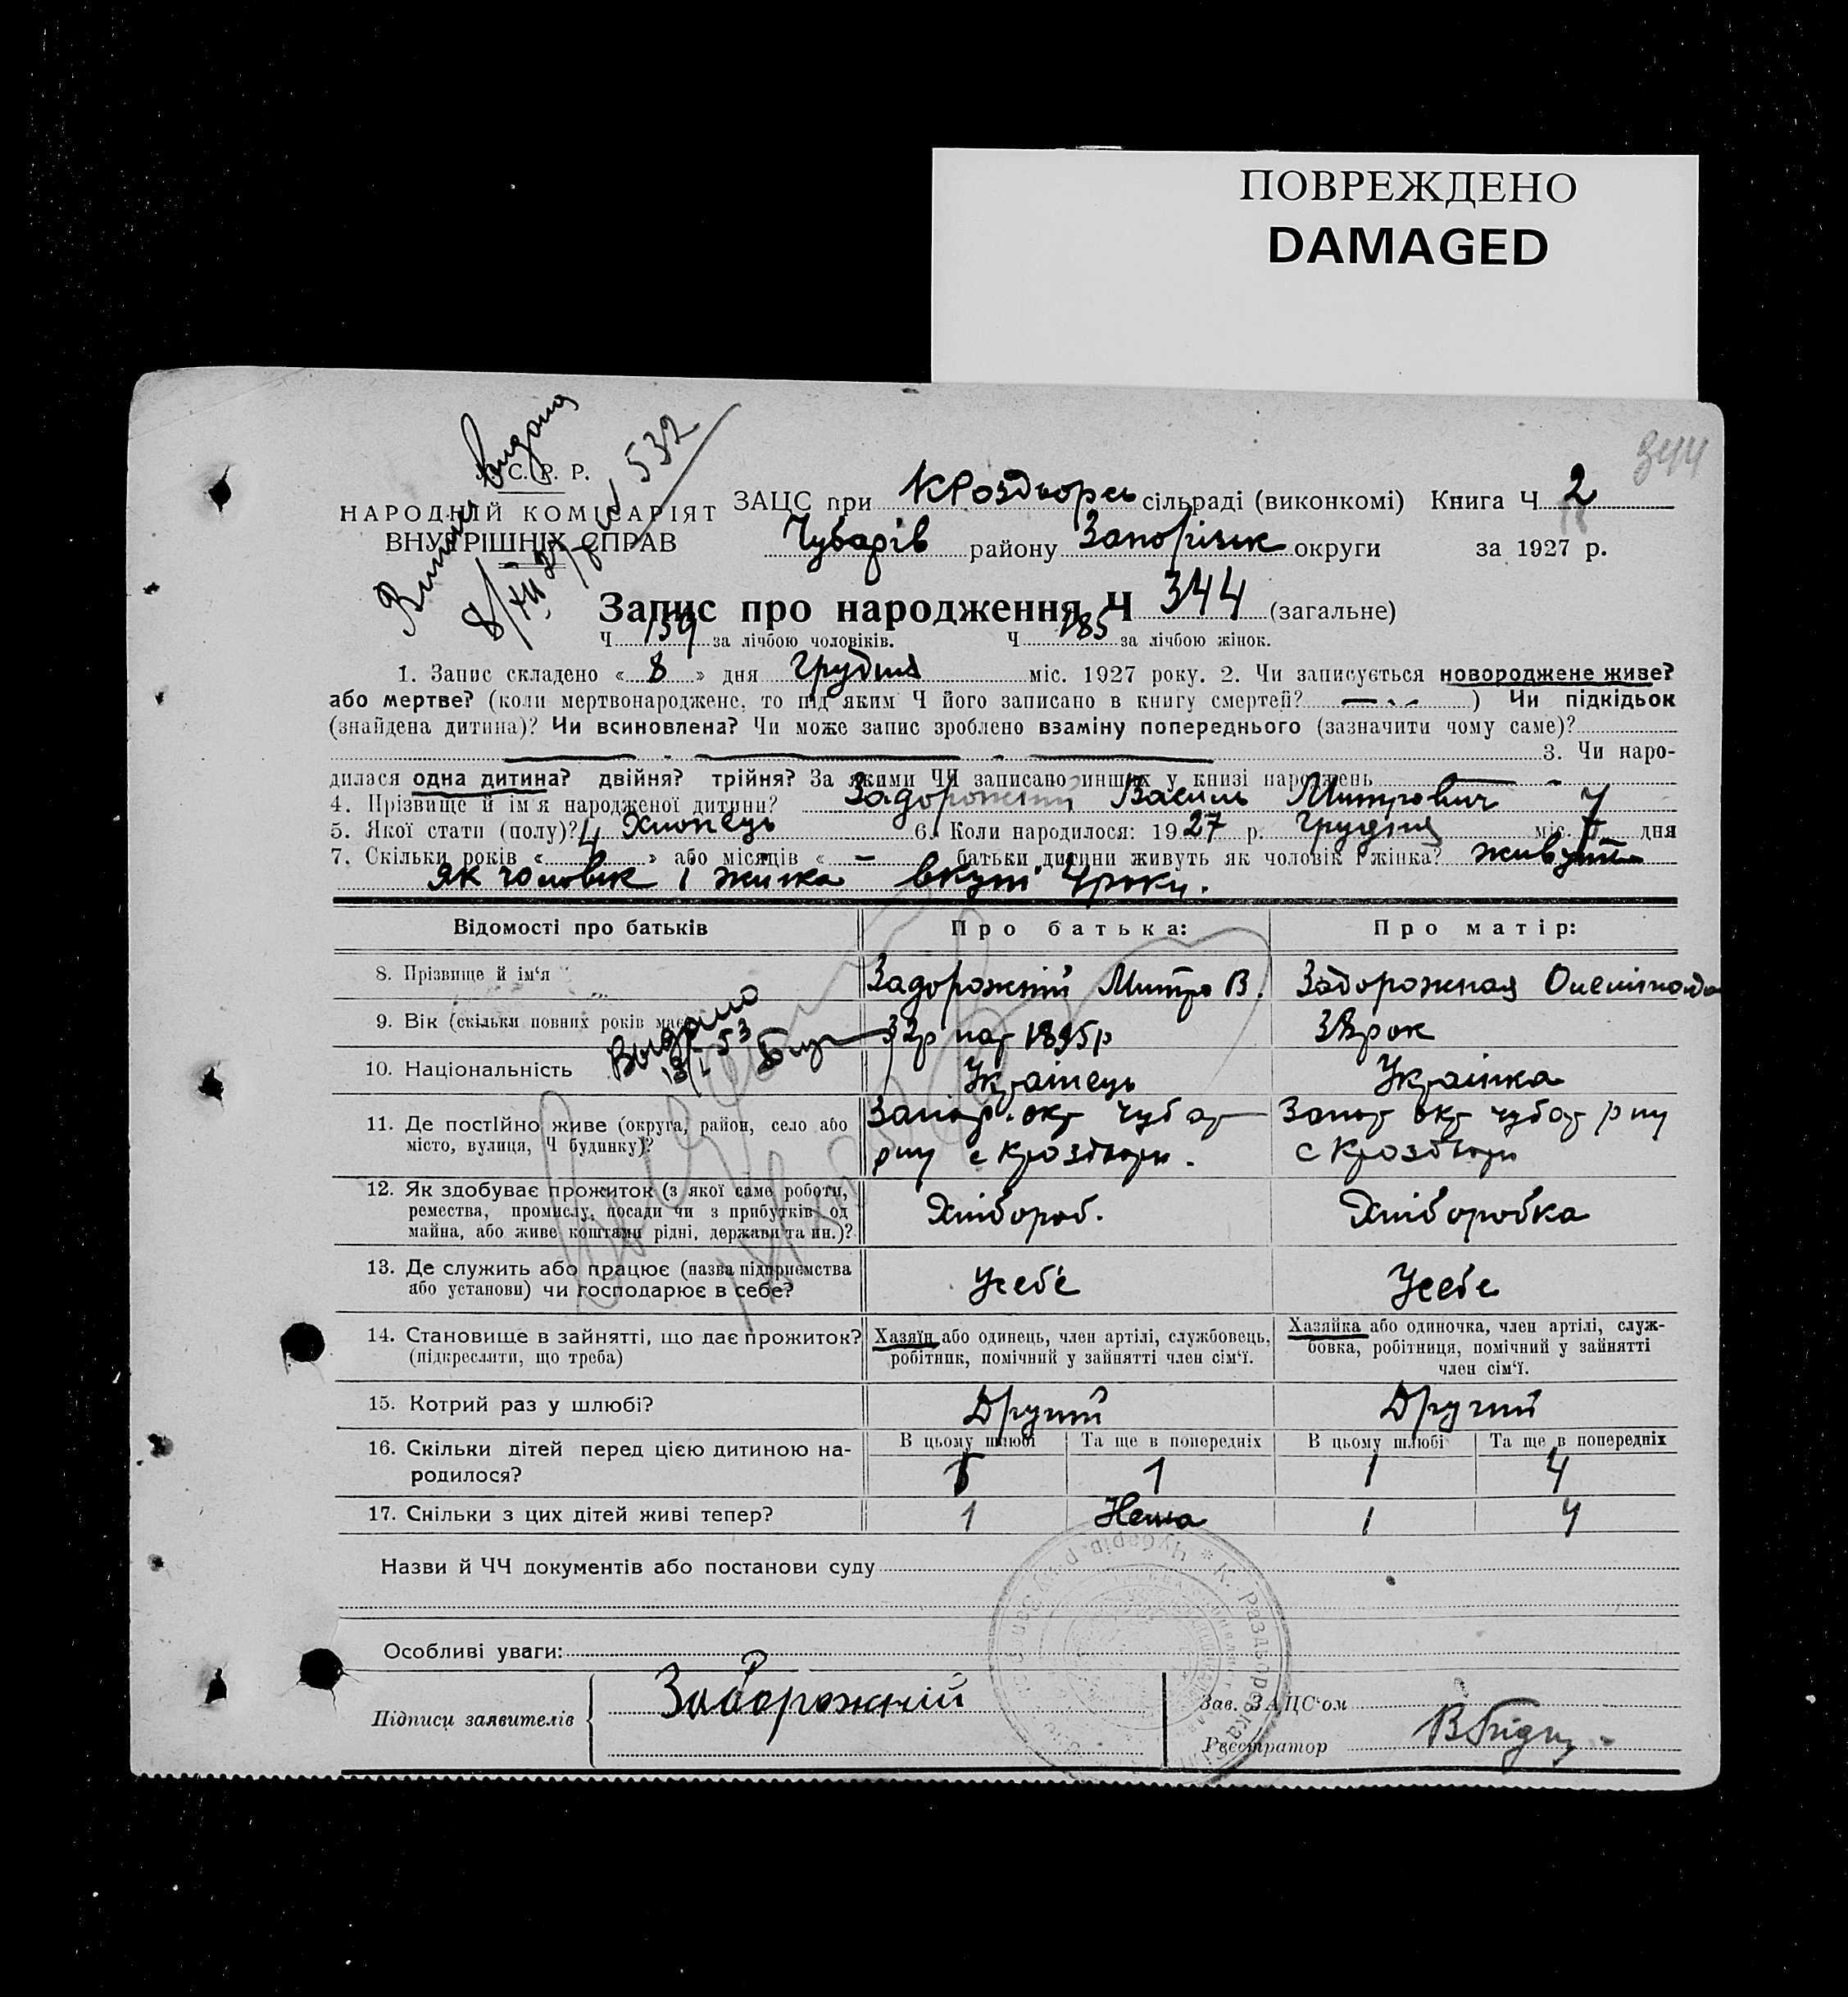 ПОВРЕЖДЕНО
DAMAGED
344
Виписи видана
8/XII 27 р. 532
С. Р. Р.
НАРОДНІЙ КОМІСАРІЯТ
ВНУТРІШНІХ СПРАВ
ЗАЦС при КРоздорсь сільраді (виконкомі) Книга Ч 2
Чубарів району Запорізьк округи за 1927 р.
Запис про народження Ч 344 (загальне)
Ч 159 за лічбою чоловіків. Ч 185 за лічбою жінок.
1. Запис складено « 8 » дня Грудня міс. 1927 року. 2. Чи записується новороджене живе?
або мертве? (коли мертвонароджене, то під яким Ч його записано в книгу смертей? — ) Чи підкідьок
(знайдена дитина)? Чи всиновлена? Чи може запис зроблено взаміну попереднього (зазначити чому саме)?
3. Чи наро-
дилася одна дитина? двійня? трійня? За якими ЧЧ записано инших у книзі народжень —
4. Прізвище й ім'я народженої дитини? Задорожній Василь Митрович
5. Якої стати (полу)? Ч Хлопець 6. Коли народилося: 1927 р. Грудня міс. 7 дня
7. Скільки років « » або місяців « — батьки дитини живуть як чоловік і жінка? живуть
як чоловік і жинка вкупі 4 роки.
Відомості про батьків Про батька: Про матір:
8. Прізвище й ім'я Задорожній Митро В. Задорожная
9. Вік (скільки повних років має 32р 1895р
Выдано
13/I 53
10. Національність Українець Українка
11. Де постійно живе (округа, район, село або
місто, вулиця, Ч будинку)?
Запор. окр Чубар
рну с Кроздори.
Запор окр чубар рну
с Кроздори
12. Як здобуває прожиток (з якої саме роботи,
ремества, промислу, посади чи з прибутків од
майна, або живе коштами рідні, держави та ин.)?
Хлібороб. Хлiборобка
13. Де служить або працює (назва підприємства
або установи) чи господарює в себе?
Усебе Усебе
14. Становище в зайнятті, що дає прожиток?
(підкреслити, що треба)
Хазяїн або одинець, член артілі, службовець,
робітник, помічний у зайнятті член сім'ї.
Хазяйка або одиночка, член артілі, служ-
бовка, робітниця, помічний у зайнятті
член сім'ї.
15. Котрий раз у шлюбі? Другий Другий
16. Скільки дітей перед цією дитиною на-
родилося?
В цьому шлюбі Та ще в попередніх В цьому шлюбі Та ще в попередніх
1 1 4
17. Скільки з цих дітей живі тепер? 1 Нема 1 4
Назви й ЧЧ документів або постанови суду
Особливі уваги:
Підписи заявителів Задорожній
Зав. ЗАЦС'ом
Реєстратор